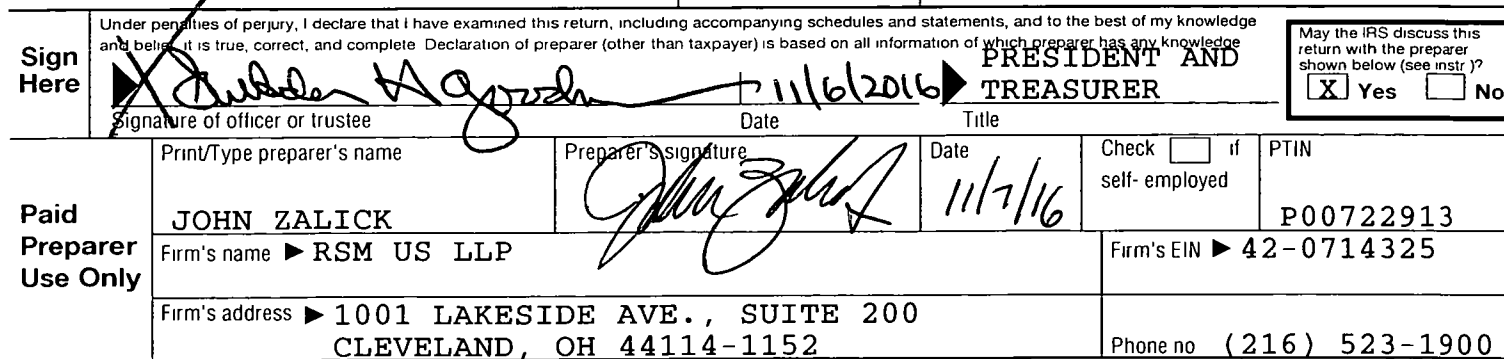 Under penalties of perjury, I declare that I have examined this return, including accompanying schedules and statements, and to the best of my knowledge
and belief, it is true, correct, and complete Declaration of preparer (other than taxpayer) is based on all information of which preparer has any knowledge
Sign Here
11/6/2016 ▶ PRESIDENT AND
TREASURER
Signature of officer or trustee Date Title
May the IRS discuss this
return with the preparer
shown below (see instr )?
X Yes No
Paid
Preparer
Use Only
Print/Type preparer's name Preparer's signature Date Check if self- employed PTIN
JOHN ZALICK 11/7/16 P00722913
Firm's name ▶ RSM US LLP Firm's EIN ▶ 42-0714325
Firm's address ▶ 1001 LAKESIDE AVE., SUITE 200
CLEVELAND, OH 44114-1152 Phone no (216) 523-1900